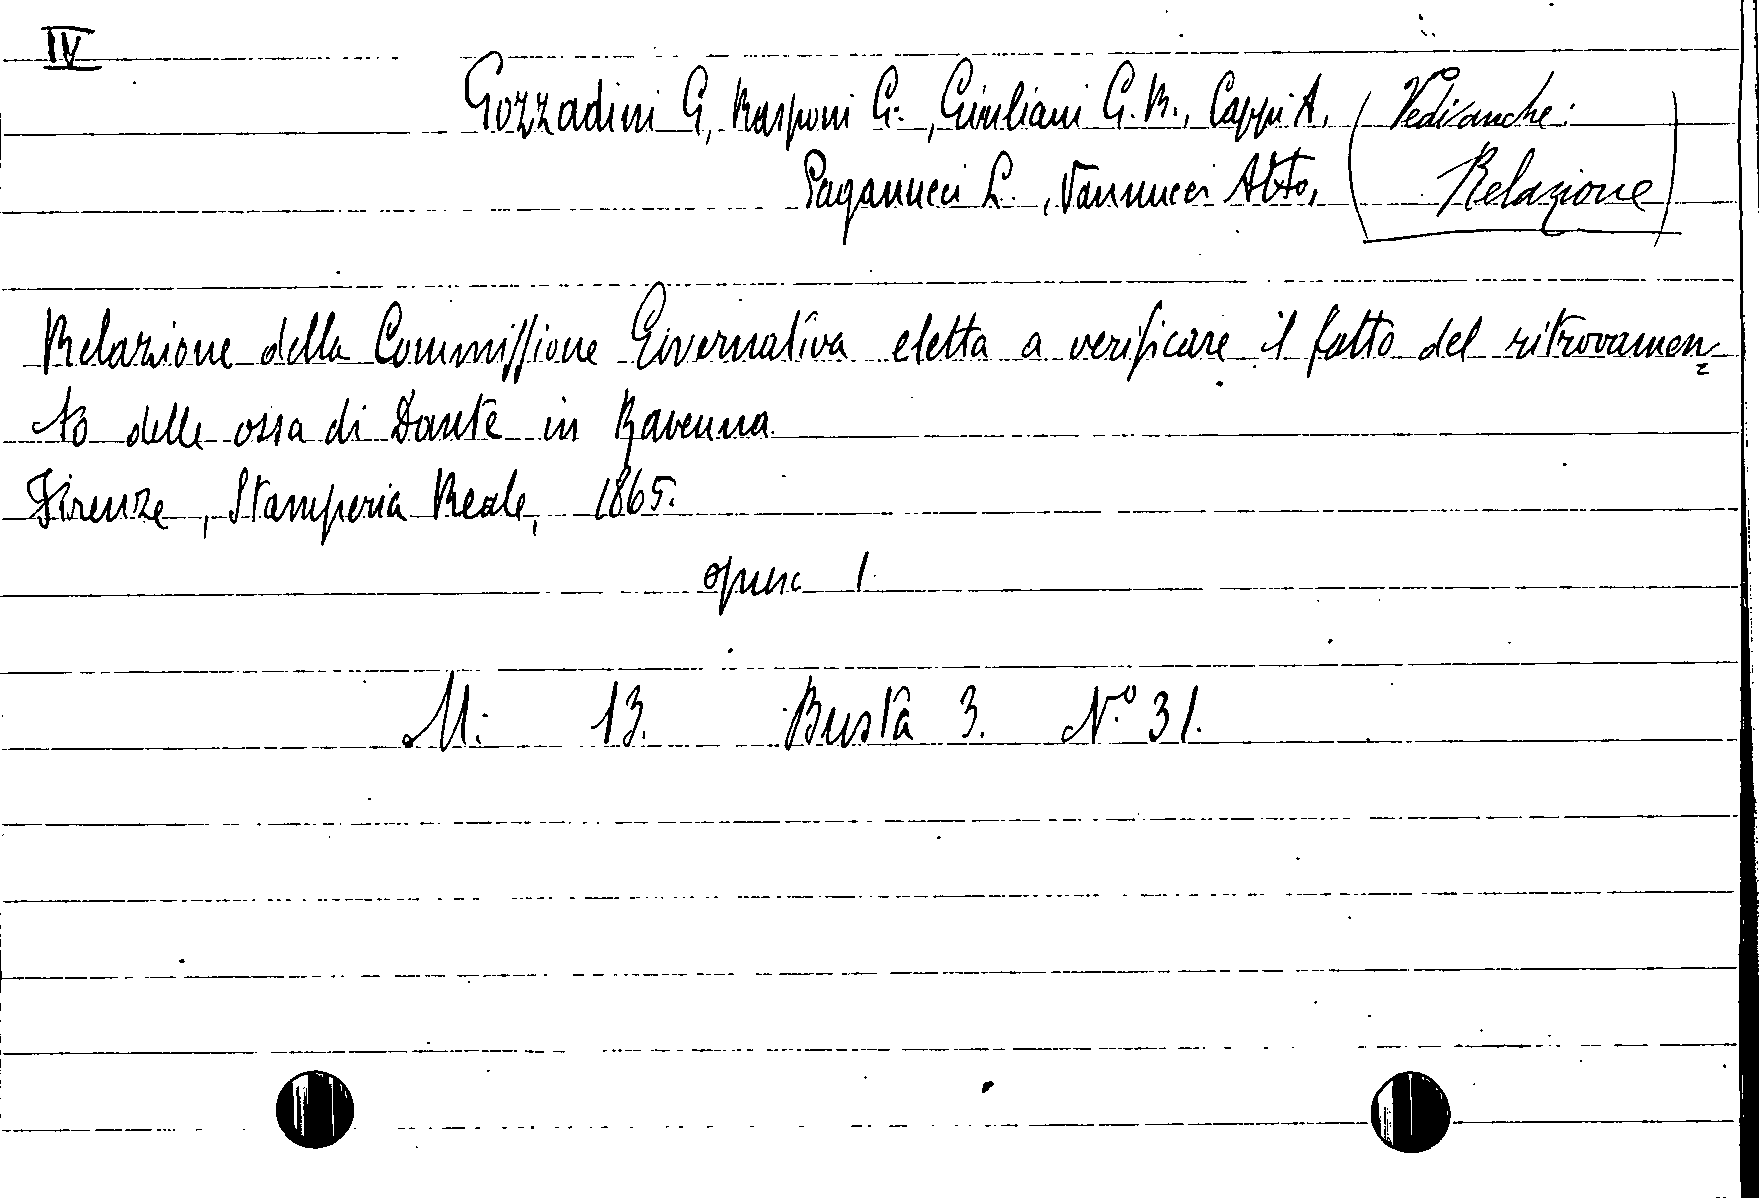 IV
Gozzadini G, Rasponi G., Giuliani G.B., Cappi A. (Vedi anche:
Paganucci L., Vannucci Atto, Relazione)
Relazione della Commissione Governativa eletta a verificare il fatto del ritrovamen=
to delle ossa di Dante in Ravenna
Firenze, Stamperia Reale, 1865.
opusc 1
M. 13. Busta 3. N.° 31.